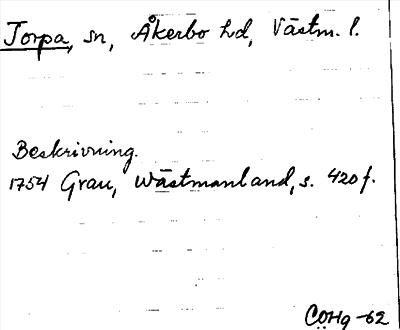 Torpa, sn, Åkerbo hd, Västm. l.
Beskrivning.
1754 Grau, Wästmanland, s. 420 f.
COHg -62